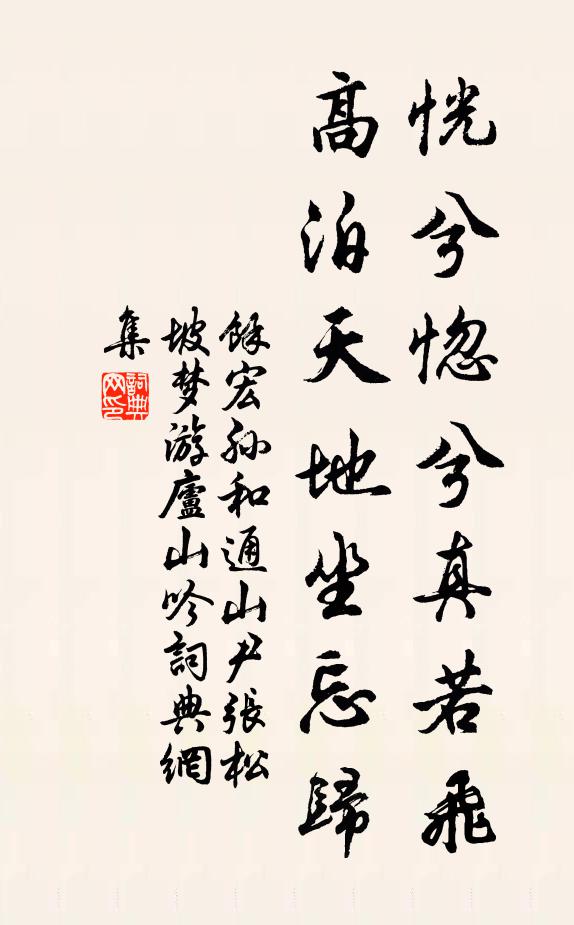 恍兮惚兮真若飛
高泊天地坐忘歸
餘宏孫和通山尹張松
坡梦游廬山吟詞典網
集
詞典
网印